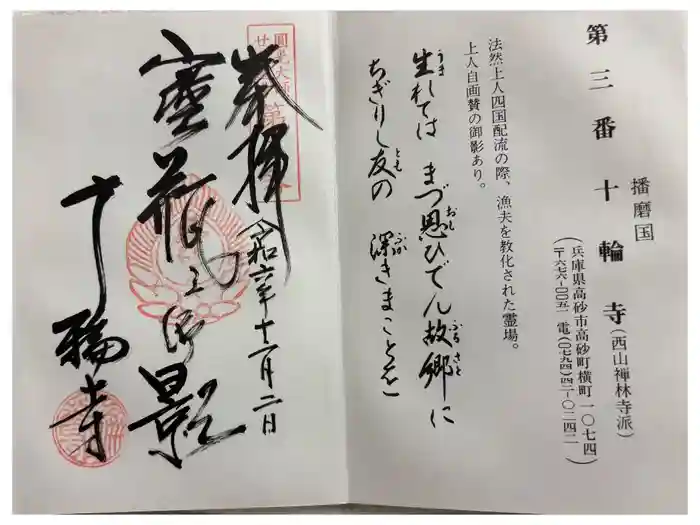 第三番 十輪寺（西山禅林寺派）
播磨国
（兵庫県高砂市高砂町横町一〇七四
〒六七六-〇〇五一 電（〇七九四）四二-〇二四二）
法然上人四国配流の際、漁夫を教化された霊場。
上人自画賛の御影あり。
生れては まづ思ひでん故郷に
うま おも ふるさと
ちぎりし友の 深きまことを
とも ふか
圓光大師
第
奉拝
令和六年十一月二日
之御影
十輪寺